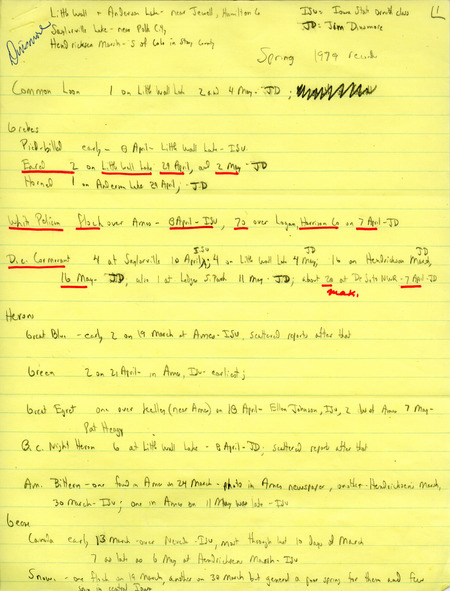 Little Wall + Anderson Lake - near Jewell, Hamilton Co
ISU: Iowa State Ornith class
1
Dinsmore
Saylorville Lake - near Polk City
JD: Jim Dinsmore
Hendrickson Marsh - S of Colo in Story County
Spring 1979 records
Common Loon 1 on Little Wall Lake 2 and 4 May - JD;
Grebes
Pied-billed early - 8 April - Little Wall Lake - ISU
Eared 2 on Little Wall Lake 29 April, and 2 May - JD
Horned 1 on Anderson Lake 29 April, - JD
White Pelican Flock over Ames - 8 April - ISU, 70 over Logan, Harrison Co on 7 April - JD
D.c. Cormorant 4 at Saylorville 10 April ISU; 4 on Little Wall Lake 4 May, JD 16 on Hendrickson Marsh, JD
16 May - JD, also 1 at Ledges S. Park 11 May - JD; about 20 at De Soto NWR - 7 April - JD
max.
Herons
Great Blue - early 2 on 19 March at Ames - ISU, scattered reports after that
Green 2 on 21 April - in Ames, ISU - earliest;
Great Egret one over Kelley (near Ames) on 18 April - Ellen Johnson, ISU, 2 W of Ames 7 May -
Pat Heagy
B.c. Night Heron 6 at Little Wall Lake - 8 April - JD; scattered reports after that
Am. Bittern - one found in Ames on 24 March - photo in Ames newspaper, another - Hendrickson Marsh,
30 March - ISU; one in Ames on 11 May was late - ISU
Geese
Canada early 13 March - over Nevada - ISU, most through last 10 days of March
7 as late as 6 May at Hendrickson Marsh - ISU
Snows - one flock on 19 March, another on 30 March but general a poor spring for them and few
in central Iowa